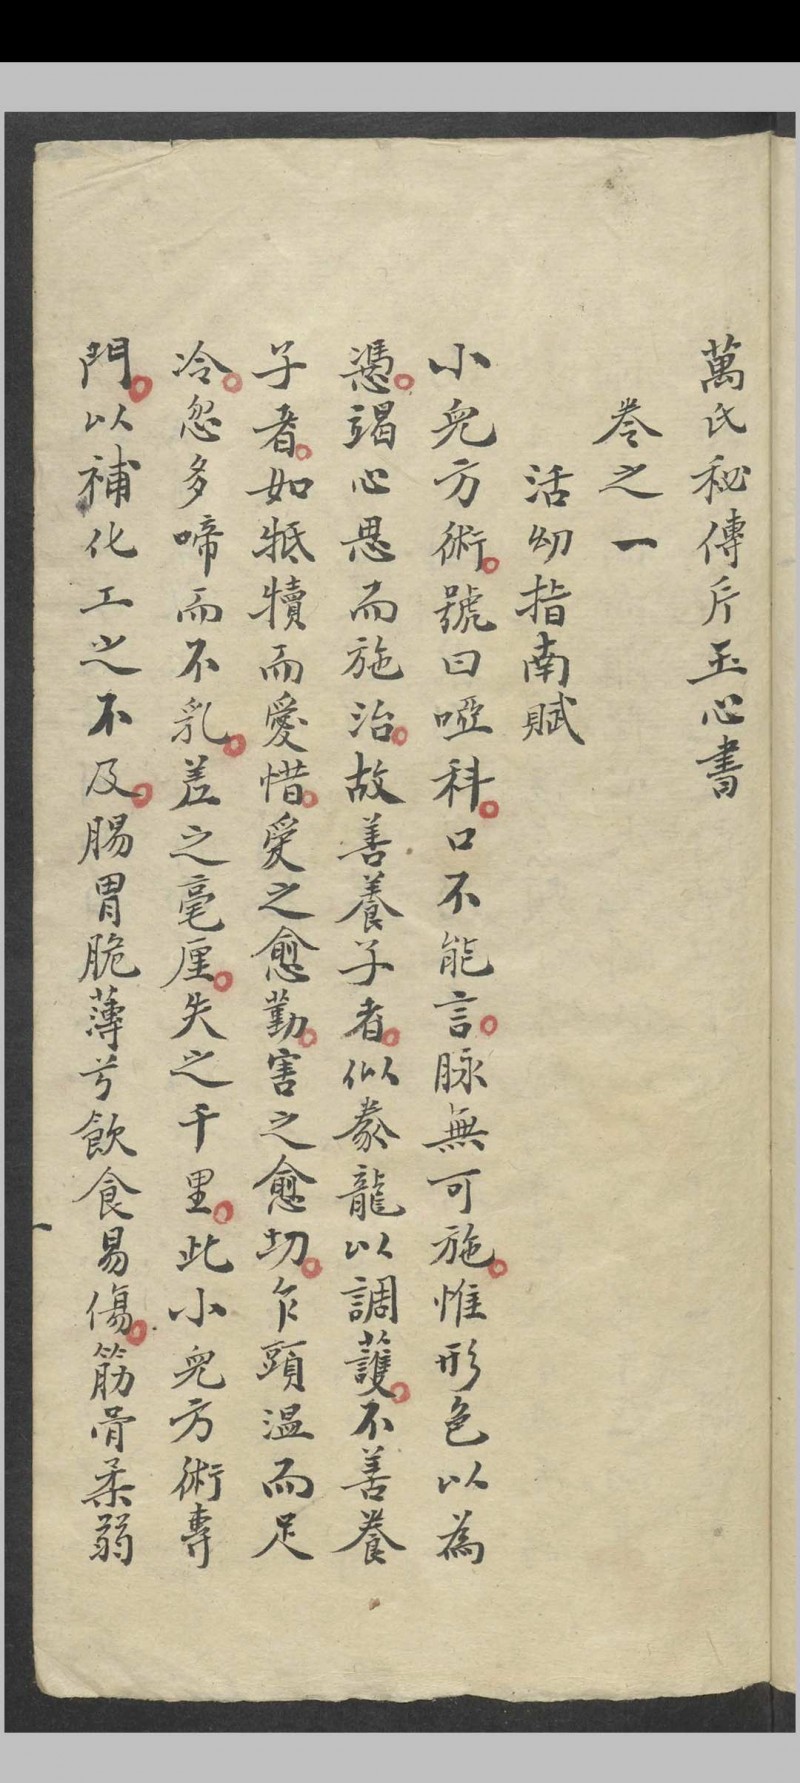 萬氏秘傳片玉心書
卷之一
活幼指南賦
小兒方術。號曰啞科。口不能言。脉無可施。惟形色以為
憑。竭心思而施治。故善養子者。似豢龍以調護。不善養
子者。如牴犢而愛惜。愛之愈勤。害之愈切。乍頭温而足
冷。忽多啼而不乳。差之毫厘。失之千里。此小兒方術專
門。以補化工之不及。腸胃脆薄兮飲食易傷。筋骨柔弱